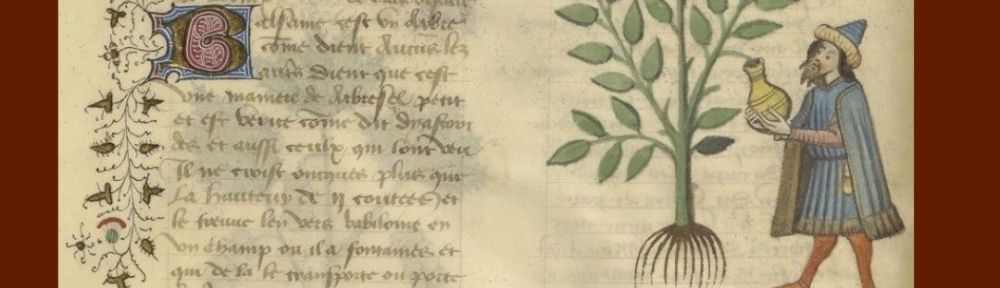 Balsame cest vn arbre
come dient aucuns lez
autres dient que cest
vne maniere de arbresel petit
et est verite come dit dyascori
des et aussi ceulx qui lont veu
Il ne croist oncques plus que
la hauteur de II coutees et
le treuue len vers babilone en
vn champ ou il a fontaines et
qui de la le transporte ou porte